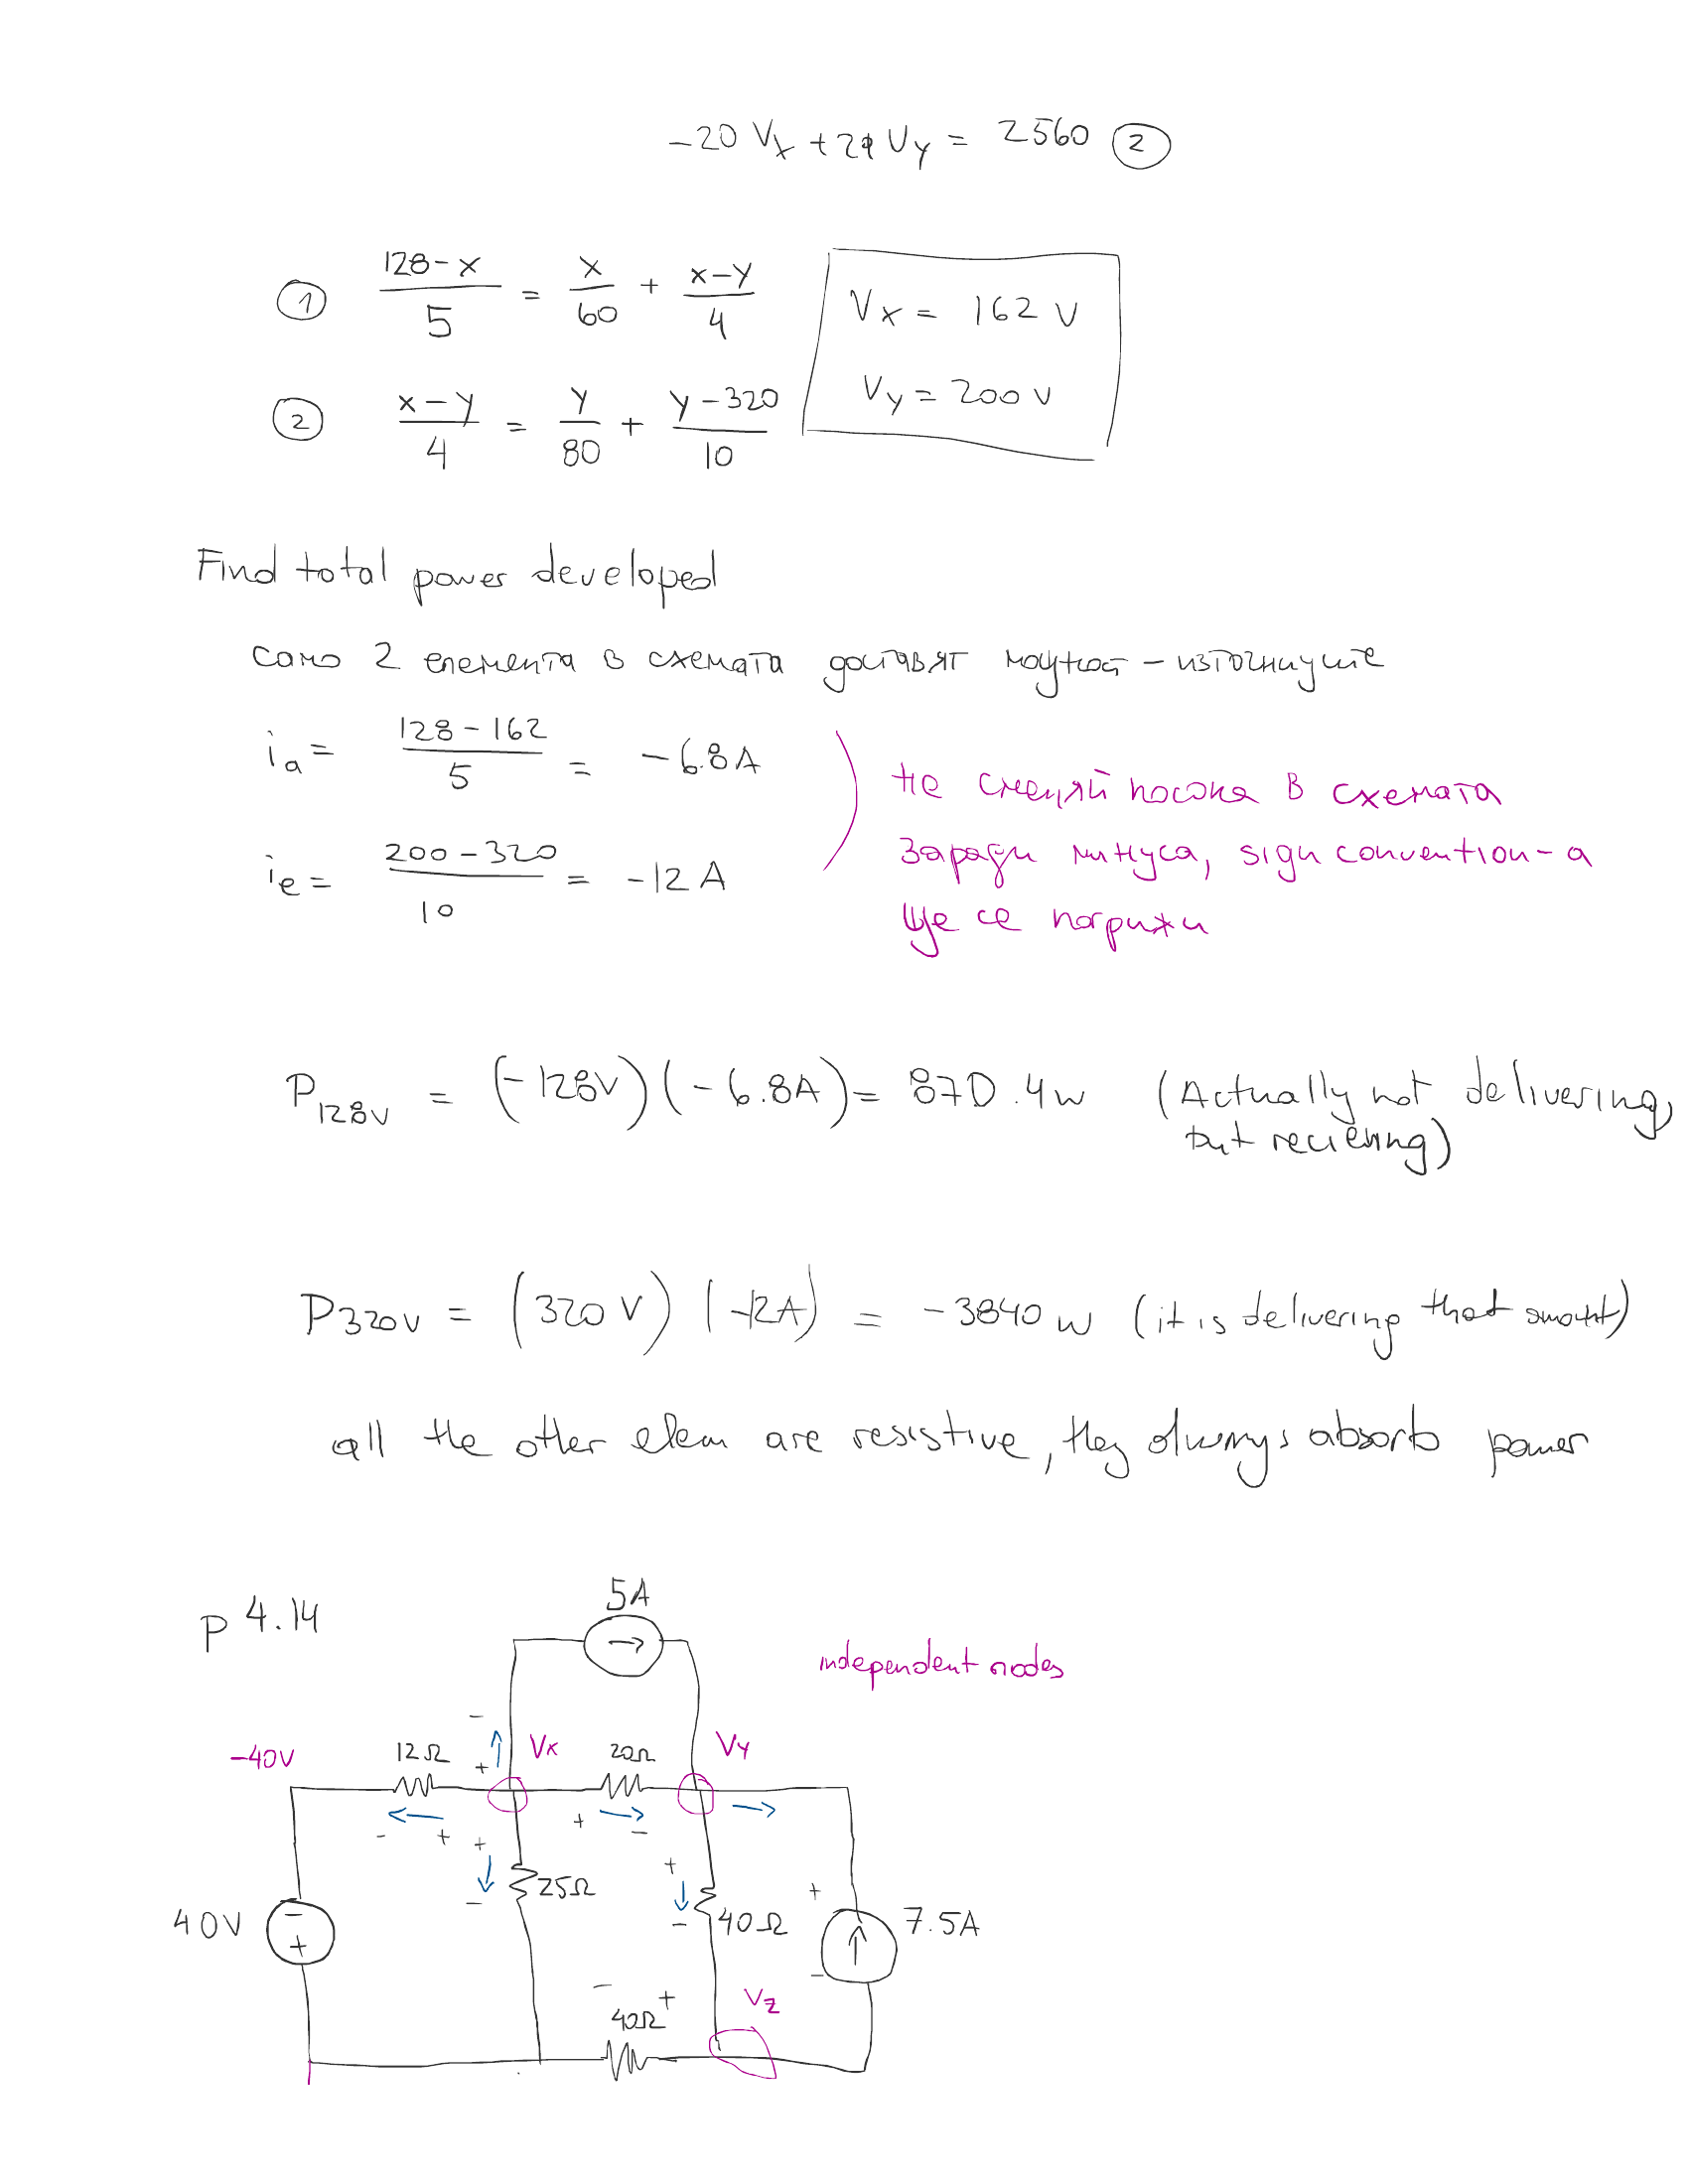 -20 Vx + 29 Vy = 2560 ②
① (128-x)/5 = x/60 + (x-y)/4
Vx = 162 V
② (x-y)/4 = y/80 + (y-320)/10
Vy = 200 V
Find total power developed
само 2 елемента в схемата доставят мощност - източниците
ia = (128-162)/5 = -6.8A
ie = (200-320)/10 = -12 A
не сменяй посока в схемата
заради минуса, sign convention-a
ще се погрижи
P128V = (-128V)(-6.8A) = 870.4w (Actually not delivering,
but recieving)
P320V = (320V)(-12A) = -3840 w (it is delivering that amount)
all the other elem are resistive, they always absorb power
P 4.14
5A
independent nodes
-40V 12Ω - + Vx 20Ω Vy
- + + + -
- 25Ω + - 40Ω + -
40V - + 7.5A
- 40Ω + Vz